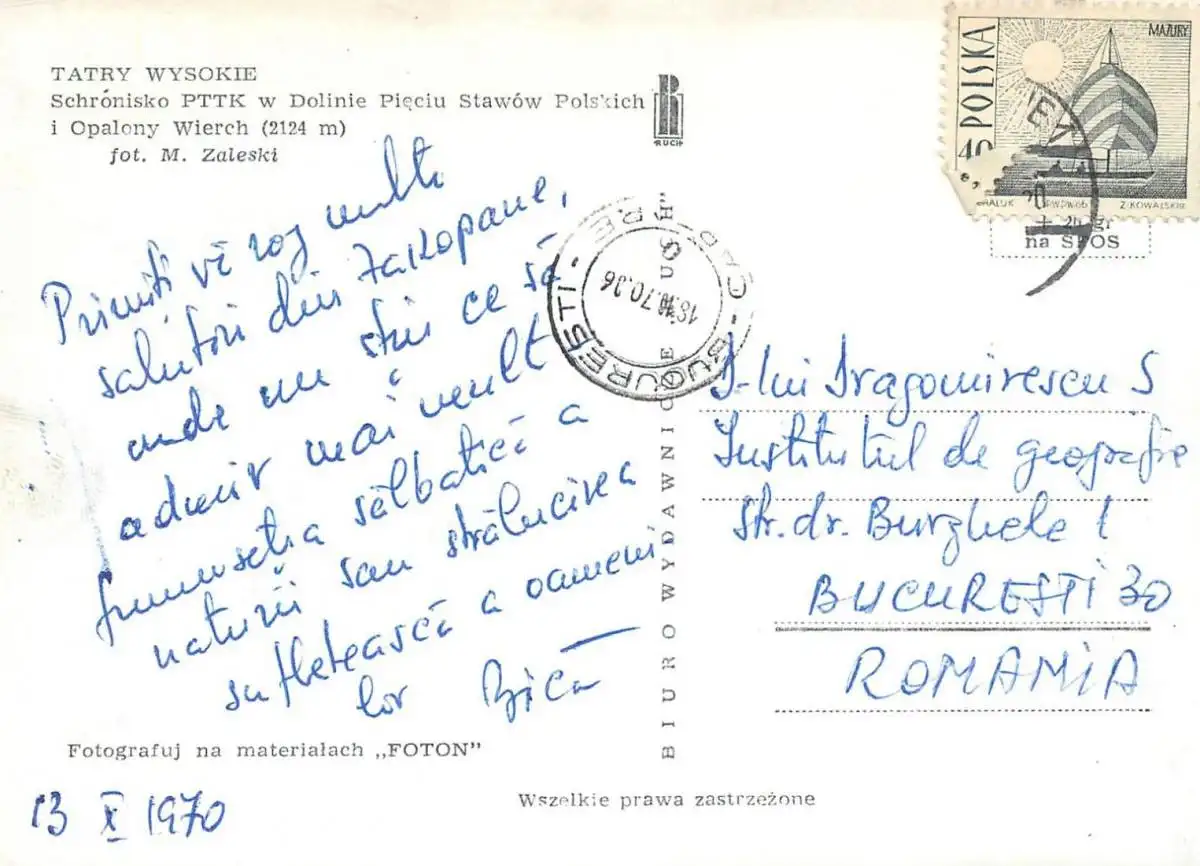 TATRY WYSOKIE
Schronisko PTTK w Dolinie Pięciu Stawów Polskich
i Opalony Wierch (2124 m)
fot. M. Zaleski
RUCH
POLSKA
MAZURY
40
Z. KOWALSKI
+ 20 gr
na SFOS
BUCUREȘTI
18.10.70.06
Primiți vă rog multe
salutări din Zakopane,
unde nu știu ce să
admir mai mult
frumusețea sălbatică a
naturii sau strălucirea
sufletească a oameni
lor
BIURO WYDAWNICZE „RUCH"
D-lui Dragomirescu S
Institutul de geografie
str. dr. Burghele 1
BUCUREȘTI 30
ROMANIA
Fotografuj na materiałach „FOTON"
Wszelkie prawa zastrzeżone
13 X 1970